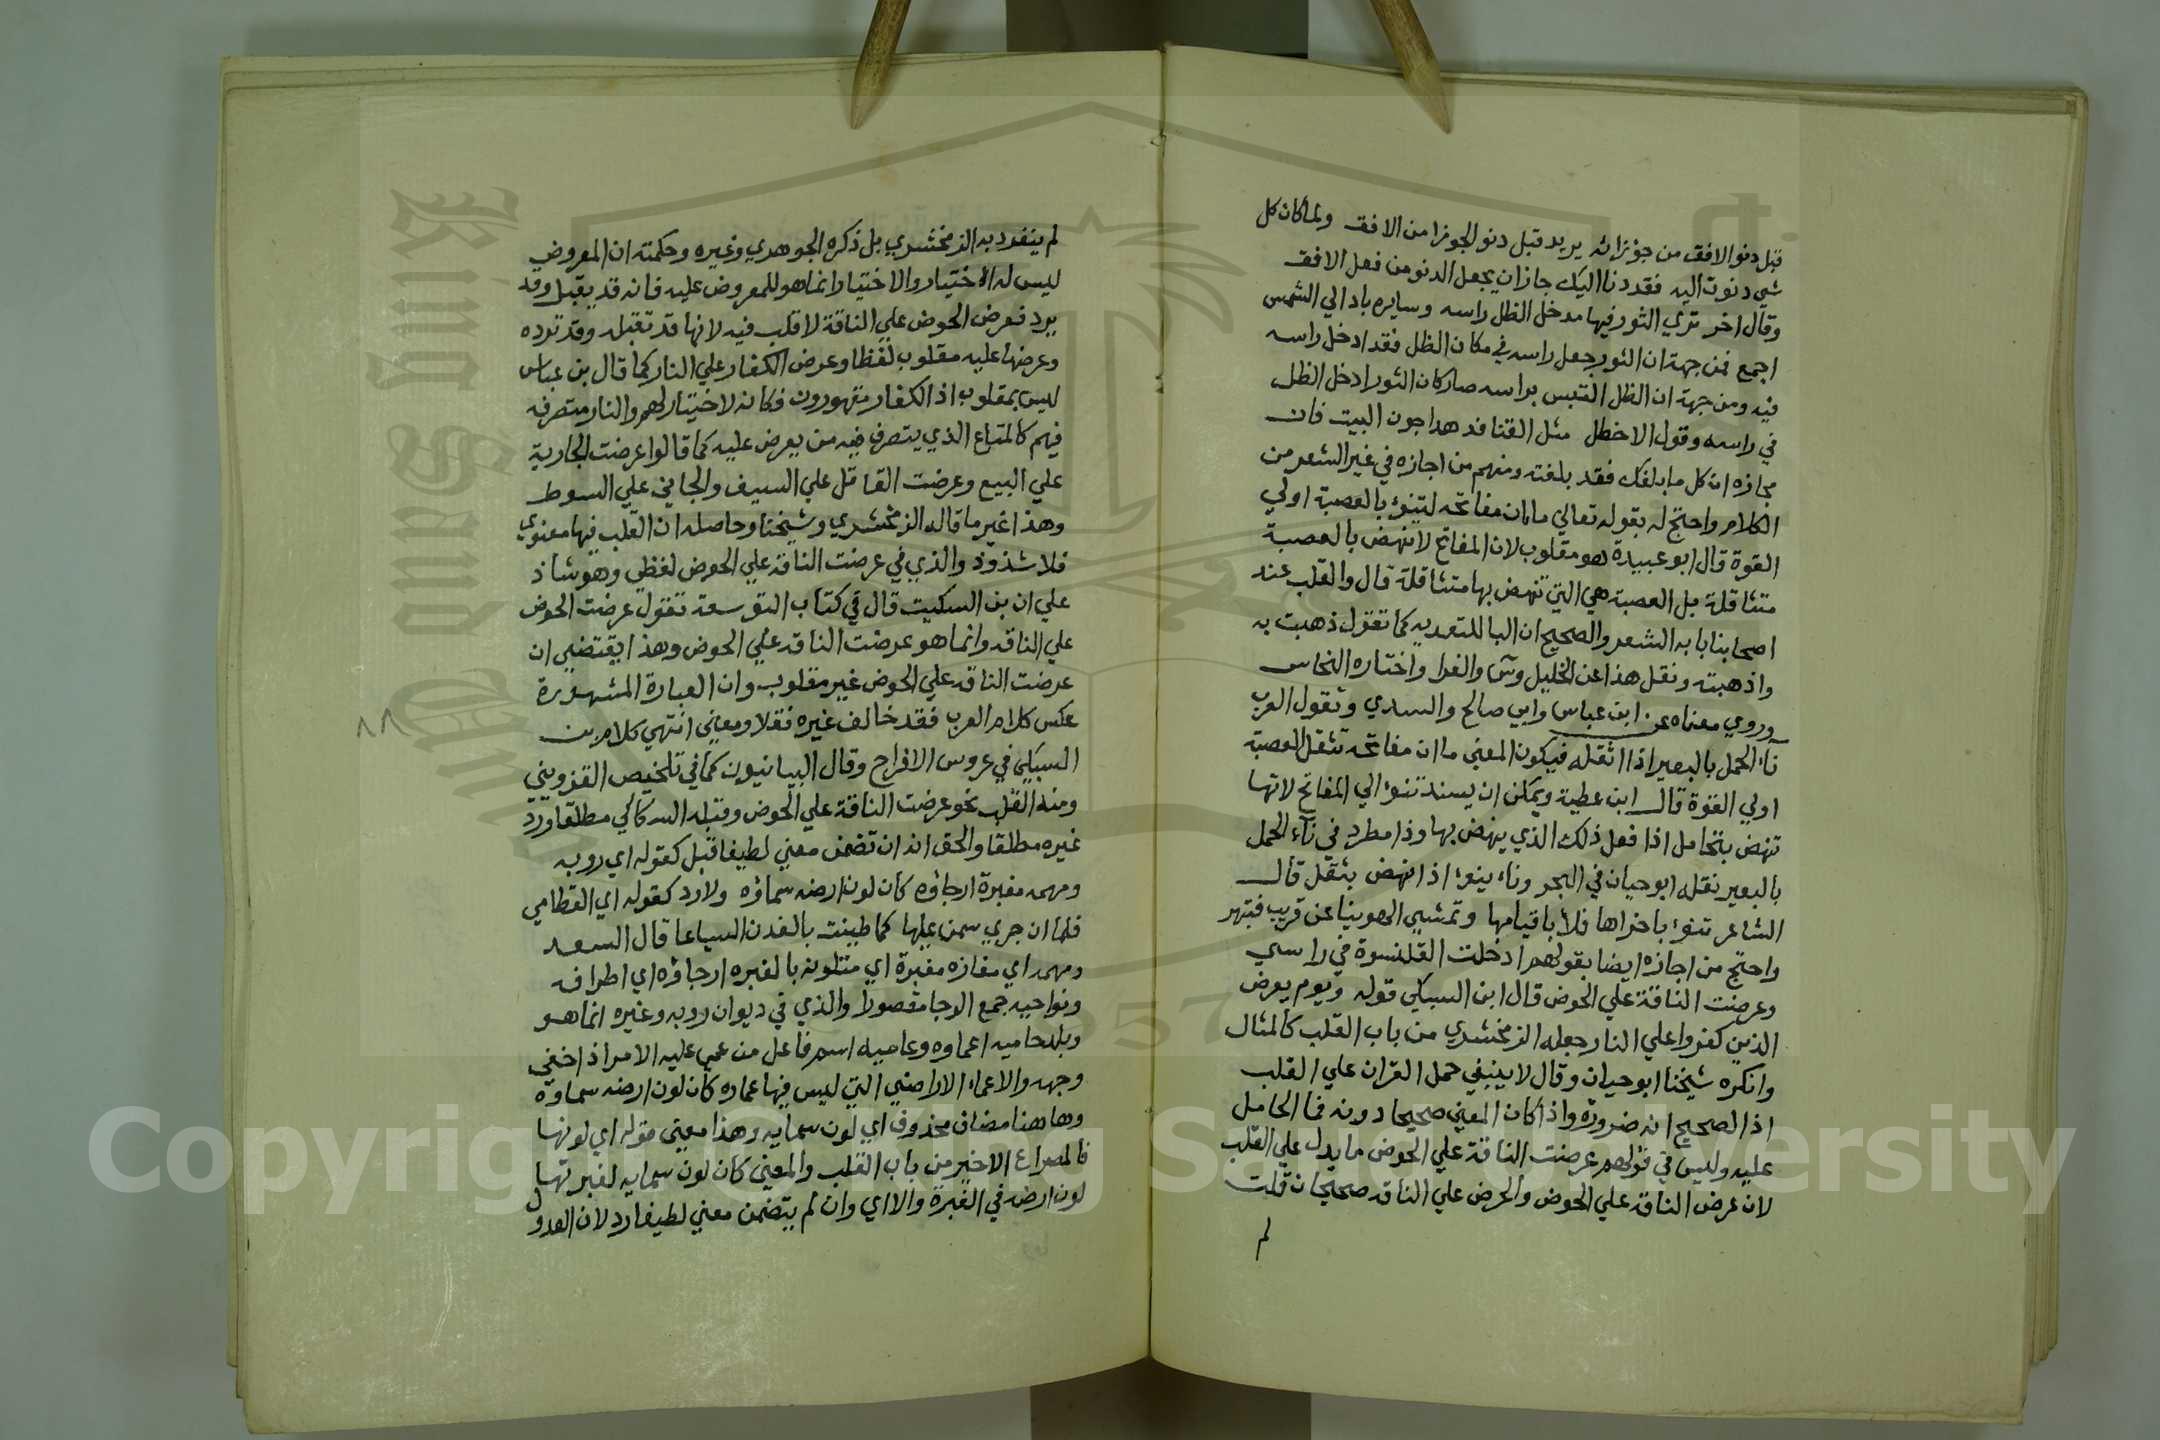 قبل دنو الافق من جوزائه يريد قبل دنو الجوزا من الافق ولما كان كل
شي دنوت اليه فقد دنا اليك جاز ان يجعل الدنو من فعل الافق
وقال اخر تري الثور فيها مدخل الظل راسه وسايره باد الي الشمس
اجمع فمن جهة ان الثور جعل راسه في مكان الظل فقد ادخل راسه
فيه ومن جهة ان الظل التبس براسه صار كان الثور ادخل الظل
في راسه وقول الاخطل مثل القنافد هداجون البيت فان
مجازه ان كل ما بلغك فقد بلغته ومنهم من اجازه في غير الشعر من
الكلام واحتج له بقوله تعالي ما ان مفاتحه لتنوء بالعصبة اولي
القوة قال ابو عبيدة هو مقلوب لان المفاتح لا تنهض بالعصبة
متثاقلة بل العصبة هي التي تنهض بها متثاقلة قال والقلب عند
اصحابنا بابه الشعر والصحيح ان البا للتعديه كما تقول ذهبت به
واذهبته ونقل هذا عن الخليل وس والفرا واختاره النحاس
وروي معناه عن ابن عباس وابي صالح والسدي وتقول العرب
ناء الحمل بالبعير اذا اثقله فيكون المعني ما ان مفاتحه تثقل العصبة
اولي القوة قال ابن عطية ويمكن ان يسند تنوء الي المفاتح لانها
تنهض بتحامل اذا فعل ذلك الذي ينهض بها وذا مطرد في ناء الحمل
بالبعير نقله ابو حيان في البحر وناء ينوء اذا نهض بثقل قال
الشاعر تنوء باخراها فلأيا قيامها وتمشي الهوينا عن قريب فتبهر
واحتج من اجازه ايضا بقولهم ادخلت القلنسوة في راسي
وعرضت الناقة علي الحوض قال ابن السبكي قوله ويوم يعرض
الذين كفروا علي النار جعله الزمخشري من باب القلب كالمثال
وانكره شيخنا ابو حيان وقال لا ينبغي حمل القران علي القلب
اذ الصحيح انه ضرورة واذا كان المعني صحيحا دونه فما الحامل
عليه وليس في قولهم عرضت الناقة علي الحوض ما يدل علي القلب
لان عرض الناقه علي الحوض والحوض علي الناقه صحيحان قلت
لم
لم ينفرد به الزمخشري بل ذكره الجوهري وغيره وحكمته ان المعروض
ليس له اختيار والاختيار انما هو للمعروض عليه فانه قد يقبل وقد
يرد فعرض الحوض علي الناقة لا قلب فيه لانها قد تقبله وقد ترده
وعرضها عليه مقلوب لفظا وعرض الكفار علي النار كما قال بن عباس
ليس بمقلوب اذ الكفار مقهورون فكانه لا اختيار لهم والنار متصرفه
فيهم كالمتاع الذي يتصرف فيه من يعرض عليه كما قالوا عرضت الجارية
علي البيع وعرضت القاتل علي السيف والجاني علي السوط
وهذا غير ما قاله الزمخشري وشيخنا وحاصله ان القلب فيها معنوي
فلا شذوذ والذي في عرضت الناقة علي الحوض لفظي وهو شاذ
علي ان بن السكيت قال في كتاب التوسعة تقول عرضت الحوض
علي الناقه وانما هو عرضت الناقه علي الحوض وهذا يقتضي ان
عرضت الناقه علي الحوض غير مقلوب وان العبارة المشهورة
عكس كلام العرب فقد خالف غيره نقلا ومعني انتهي كلام بن
السبكي في عروس الافراح وقال البيانيون كما في تلخيص القزويني
ومنه القلب نحو عرضت الناقة علي الحوض وقبله السكاكي مطلقا ورد
غيره مطلقا والحق انه ان تضمن معني لطيفا قبل كقوله اي روبه
ومهمه مغبرة ارجاؤه كان لون ارضه سماؤه ولا رد كقوله اي القطامي
فلما ان جري سمن عليها كما طينت بالفدن السياعا قال السعد
ومهمه اي مفازه مغبرة اي متلونه بالغبره ارجاؤه اي اطرافه
ونواحيه جمع الرجا مقصورا والذي في ديوان روبه وغيره انما هو
وبلد عاميه اعماوه وعاميه اسم فاعل من عمي عليه الامر اذ اخفي
وجهه والاعماء الاراضي التي ليس فيها عماره كان لون ارضه سماوه
وهاهنا مضاف محذوف اي لون سمايه وهذا معني قوله اي لونها
فالمصراع الاخير من باب القلب والمعني كان لون سمايه لغبرتها
لون ارضه في الغبرة والا اي وان لم يتضمن معني لطيفا رد لان العدول
٨٨